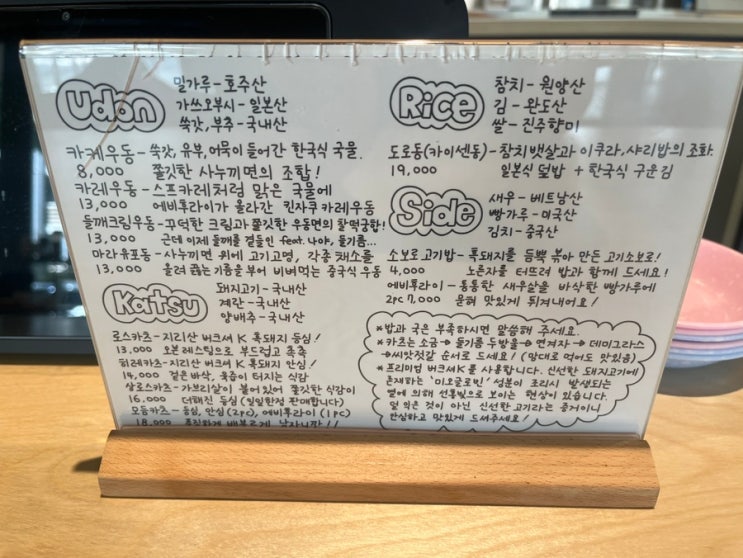 Udon
밀가루-호주산
가쓰오부시-일본산
쑥갓,부추-국내산
카케우동-쑥갓, 유부, 어묵이 들어간 한국식 국물.
8,000 쫄깃한 사누끼면의 조합!
카레우동-스프카레처럼 맑은 국물에
13,000 에비후라이가 올라간 킨자쿠카레우동
들깨크림우동-꾸덕한 크림과 쫄깃한 우동면의 찰떡궁합!
13,000 근데 이제 들깨를 곁들인 feat. 나야, 들기름...
마라유포동-사누끼면 위에 고기고명, 각종 채소를
13,000 올려 끓는기름을 부어 비벼먹는 중국식 우동
Katsu
돼지고기-국내산
계란-국내산
양배추-국내산
로스카츠-지리산 버크셔 K 흑돼지 등심!
13,000 오븐레스팅으로 부드럽고 촉촉
히레카츠-지리산 버크셔 K 흑돼지 안심!
14,000 겉은 바삭, 육즙이 터지는 식감
상로스카츠-가브리살이 붙어있어 쫄깃한 식감이
16,000 더해진 등심 (일일한정 판매합니다)
모듬카츠-등심, 안심(2pc), 에비후라이(1pc)
18,000 푸짐하게 배부르게
Rice
참치-원양산
김-완도산
쌀-진주향미
도로동(카이센동)-참치뱃살과 이쿠라, 샤리밥의 조화.
19,000 일본식 덮밥 + 한국식 구운김
Side
새우-베트남산
빵가루-미국산
김치-중국산
소보로고기밥-흑돼지를 듬뿍 볶아 만든 고기소보로!
4,000 노른자를 터뜨려 밥과 함께 드세요!
에비후라이-통통한 새우살을 바삭한 빵가루에
2pc 7,000 묻혀 맛있게 튀겨내어요!
*밥과 국은 부족하시면 말씀해 주세요.
*카츠는 소금→들기름 두방울→연겨자→데미그라스
→씨앗젓갈 순서로 드세요! (맘대로 먹어도 맛있음)
*프리미엄 버크셔K를 사용합니다. 신선한 돼지고기에
존재하는 '미오글로빈' 성분이 조리시 발생되는
열에 의해 선홍빛으로 보이는 현상이 있습니다.
덜 익은 것이 아닌 신선한 고기라는 증거이니
안심하고 맛있게 드셔주세요!